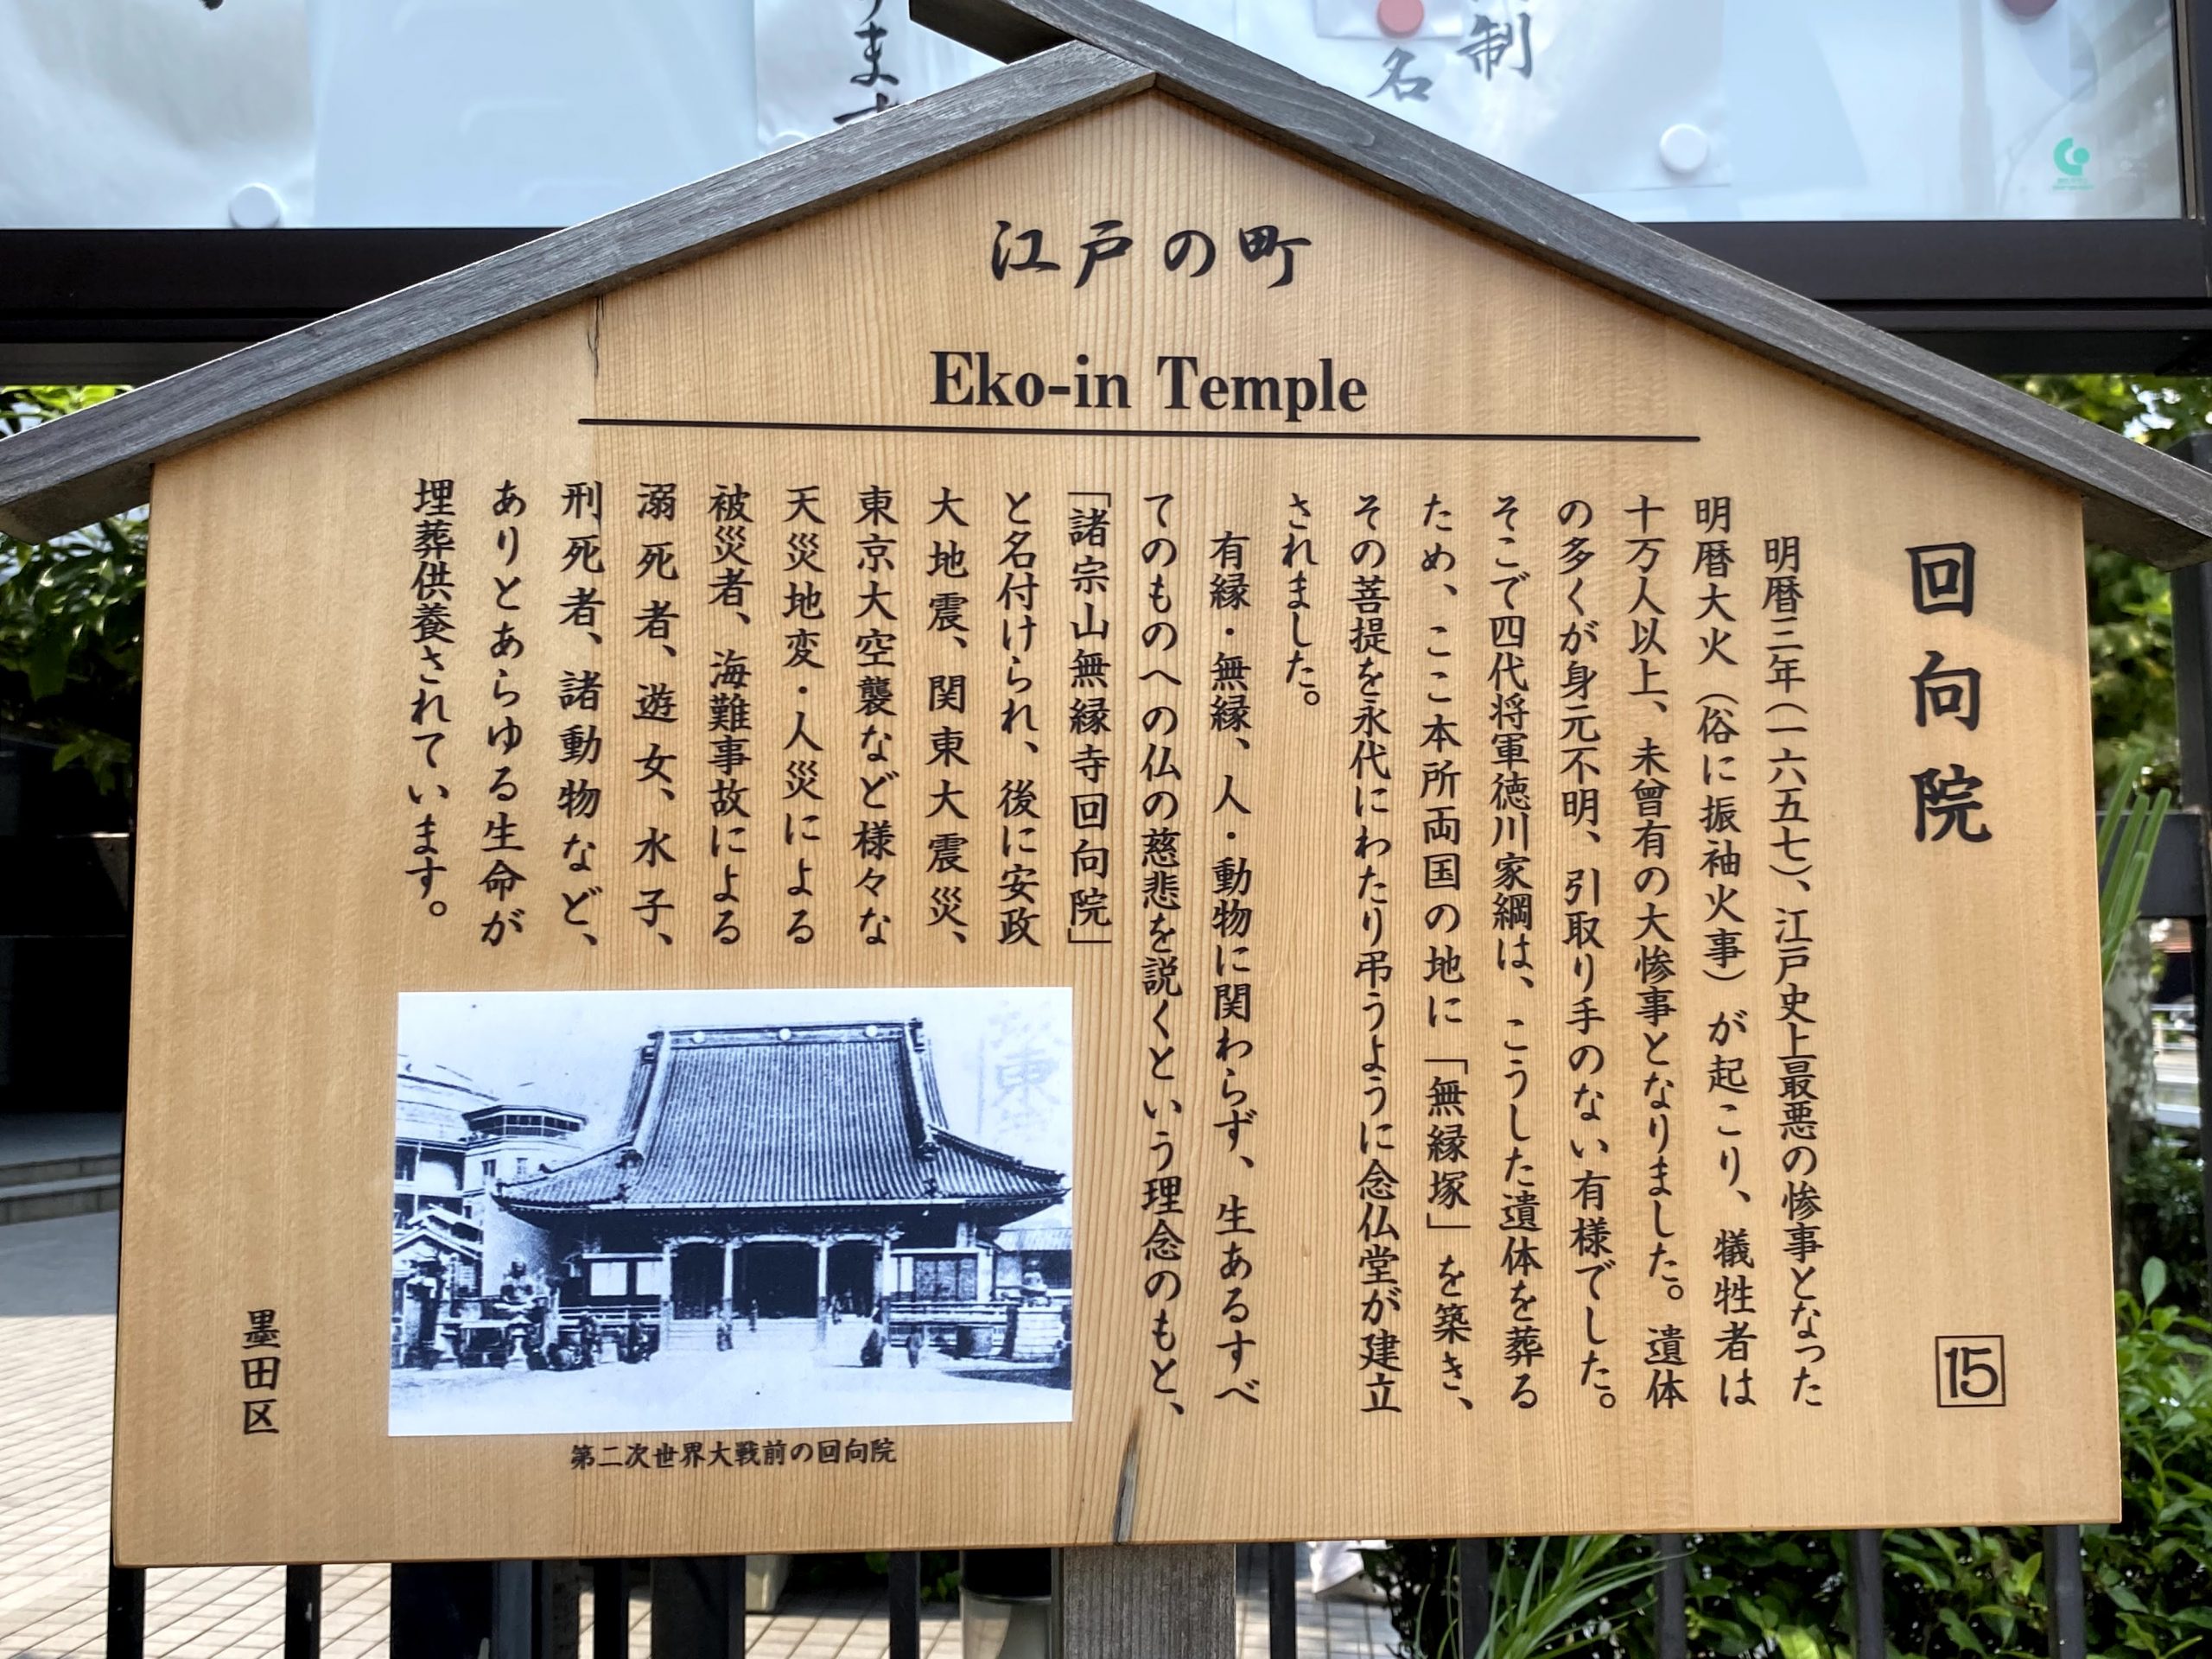 ります
制
名
江戸の町
Eko-in Temple
回向院
15
明暦三年(一六五七)、江戸史上最悪の惨事となった
明暦大火(俗に振袖火事)が起こり、犠牲者は
十万人以上、未曾有の大惨事となりました。遺体
の多くが身元不明、引取り手のない有様でした。
そこで四代将軍徳川家綱は、こうした遺体を葬る
ため、ここ本所両国の地に「無縁塚」を築き、
その菩提を永代にわたり弔うように念仏堂が建立
されました。
有縁・無縁、人・動物に関わらず、生あるすべ
てのものへの仏の慈悲を説くという理念のもと、
「諸宗山無縁寺回向院」
と名付けられ、後に安政
大地震、関東大震災、
東京大空襲など様々な
天災地変・人災による
被災者、海難事故による
溺死者、遊女、水子、
刑死者、諸動物など、
ありとあらゆる生命が
埋葬供養されています。
第二次世界大戦前の回向院
墨田区